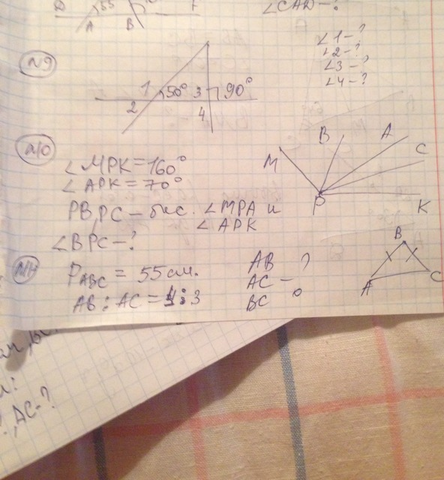 A
B
∠CAD - ?
N9
∠1 - ?
∠2 - ?
∠3 - ?
∠4 - ?
1 50° 3 90°
2 4
N10
∠MPK = 160°
∠APK = 70°
PB, PC - бис. ∠MPA и
∠APK
∠BPC - ?
M B A C
P K
N11
P ABC = 55 см.
AB : AC = 4 : 3
AB
AC - ?
BC
B
A C
AC - ?